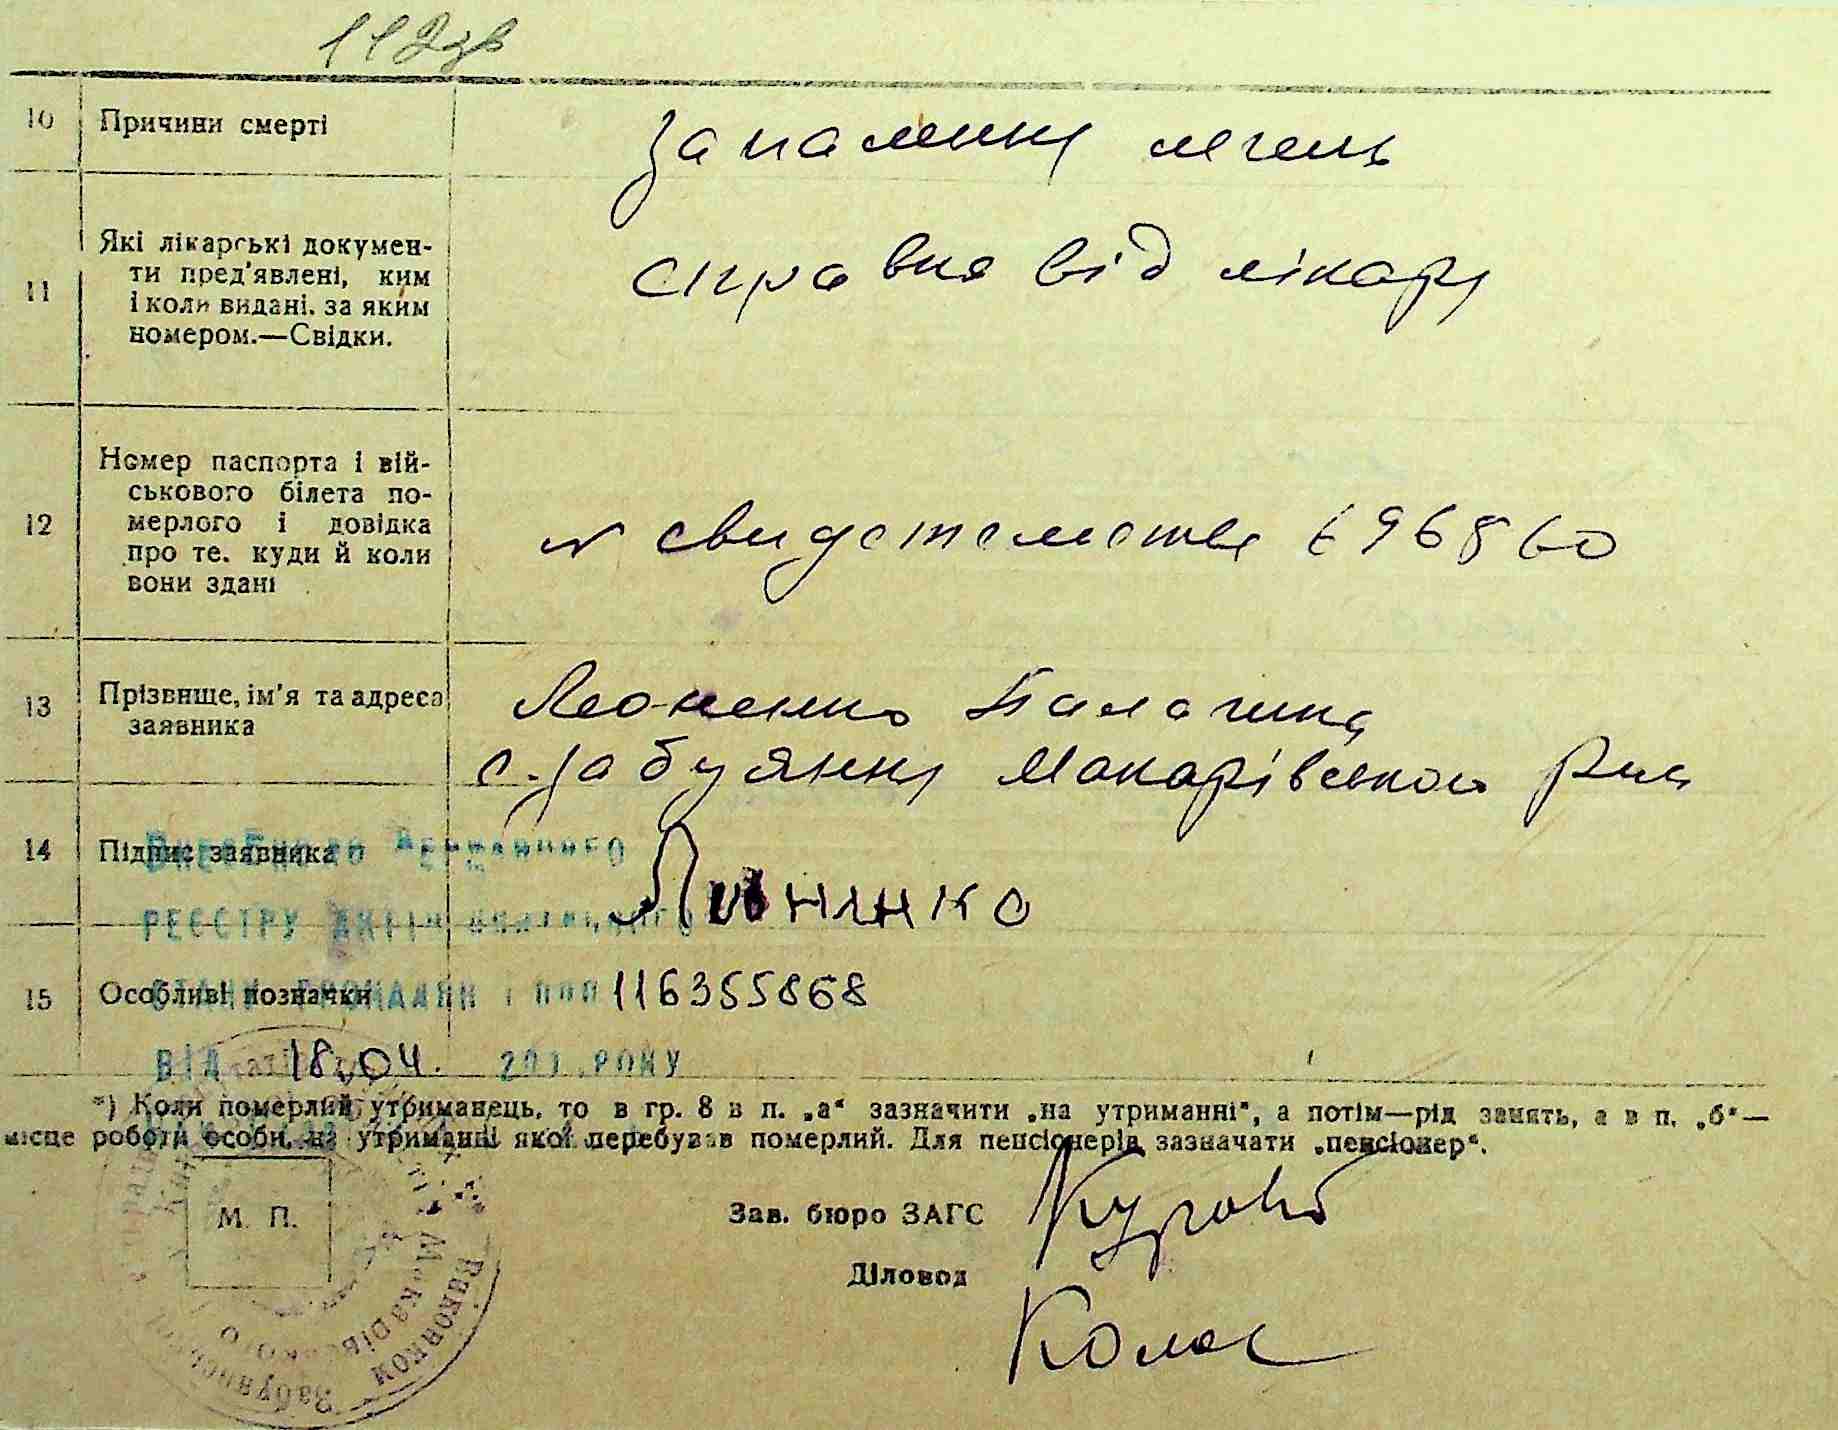 112зв
10 Причини смерті
Запаленя легень
11 Які лікарські докумен-
ти пред'явлені, ким
і коли видані, за яким
номером.—Свідки.
справка від лікаря
12 Номер паспорта і вій-
ськового білета по-
мерлого і довідка
про те, куди й коли
вони здані
свидетельства 696860
13 Прізвище, ім'я та адреса
заявника
Леоненко Палагина
с. Забуяння Макарівського
14 Підпис заявника
Внесено до Державного
РЕЄСТРУ АКТІВ ЦИВІЛЬНОГО
15 Особливі позначки
СТАНУ ГРОМАДЯН І 116355868
ВІД 18.04. 201 РОКУ
*) Коли померлий утриманець, то в гр. 8 в п. „а“ зазначити „на утриманні“, а потім—рід занять, а в п. „б“—
місце роботи особи, на утриманні якої перебував померлий. Для пенсіонерів зазначати „пенсіонер“.
М. П.
Зав. бюро ЗАГС
Діловод
Виконком
Макарівського